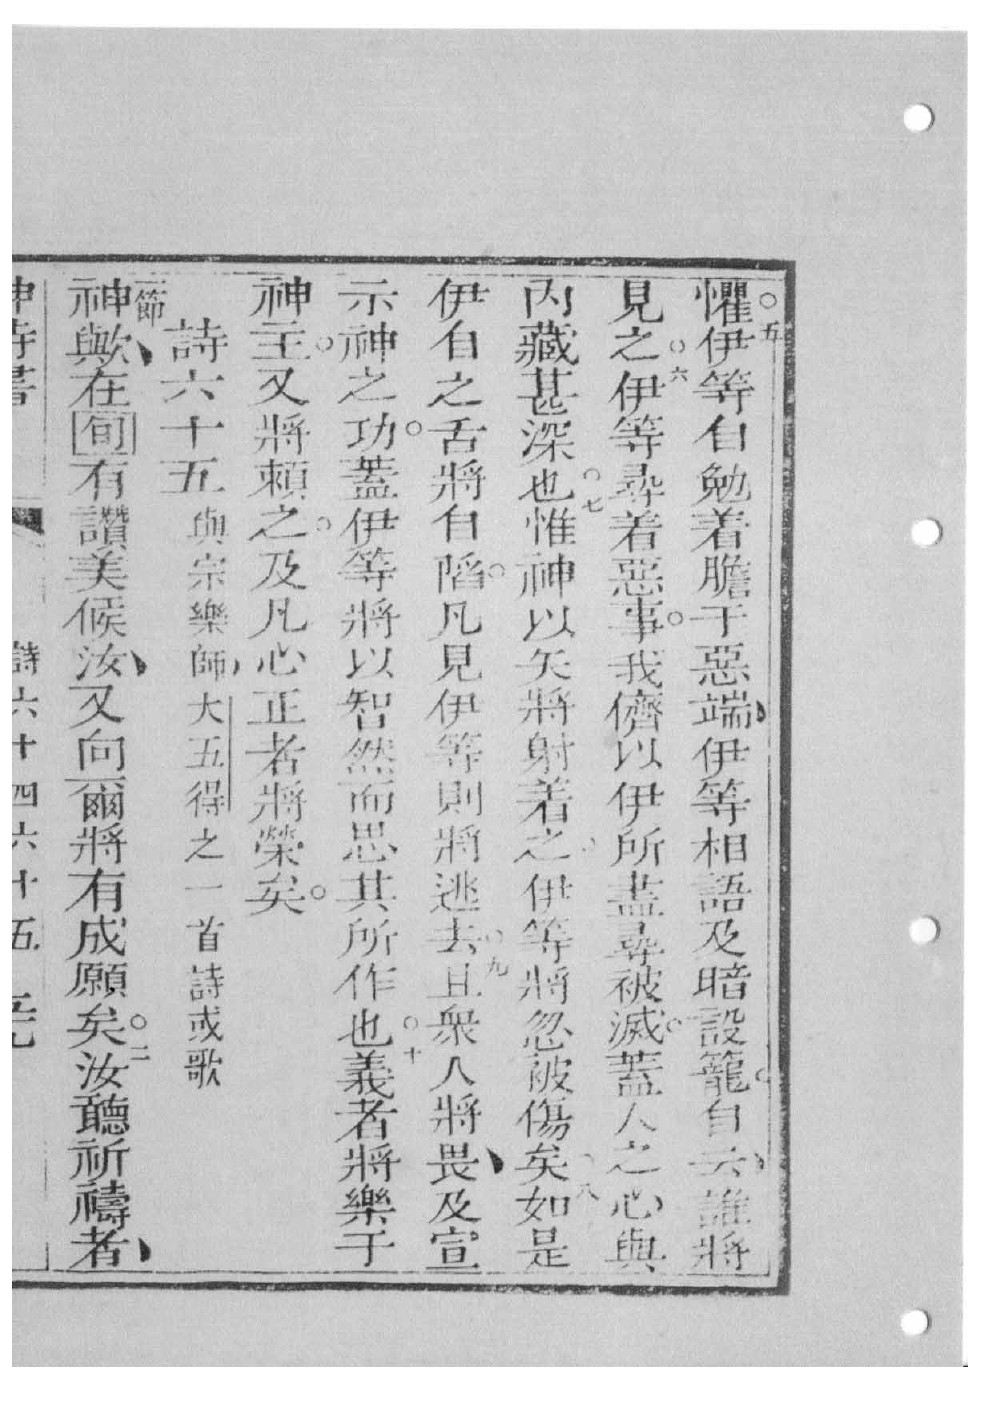 懼○五伊等自勉着膽于惡端伊等相語及暗設籠○自云誰將
見之○六伊等尋着惡事○我儕以伊所盡尋被滅○蓋人之心與
內藏甚深也○七惟神以矢將射着之○伊等將忽被傷矣○八如是
伊自之舌將自陷○凡見伊等則將逃去○九且衆人將畏及宣
示神之功○蓋伊等將以智然而思其所作也○十義者將樂于
神主○又將賴之○及凡心正者將榮矣○
詩六十五 與宗樂師大五得之一首詩或歌
一節
神歟在旬有讚美候汝又向爾將有成願矣○二汝聽祈禱者
神詩書 詩六十四六十五